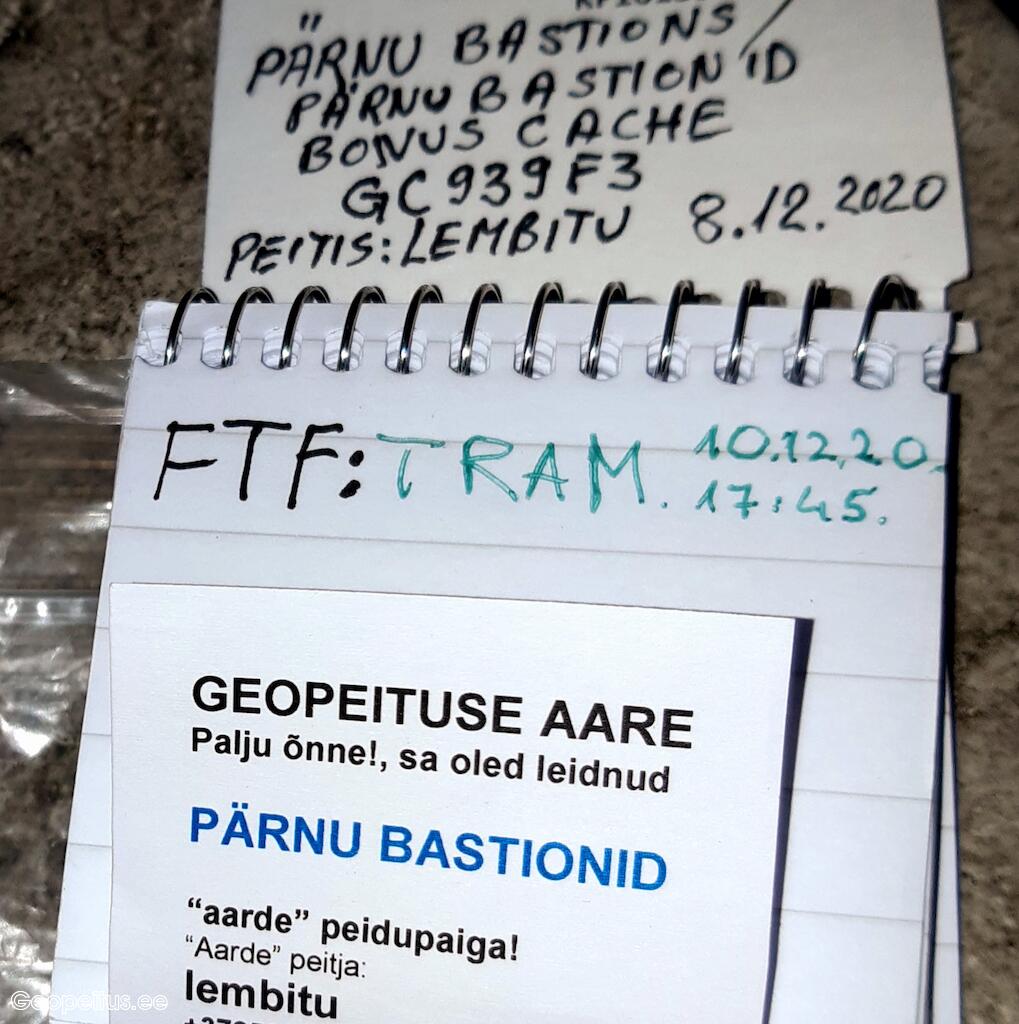 PÄRNU BASTIONS/
PÄRNU BASTIONID
BONUS CACHE
GC939F3
PEITIS: LEMBITU 8.12.2020
FTF: TRAM. 10.12.20.
17:45.
GEOPEITUSE AARE
Palju õnne!, sa oled leidnud
PÄRNU BASTIONID
“aarde” peidupaiga!
“Aarde” peitja:
lembitu
Geopeitus.ee